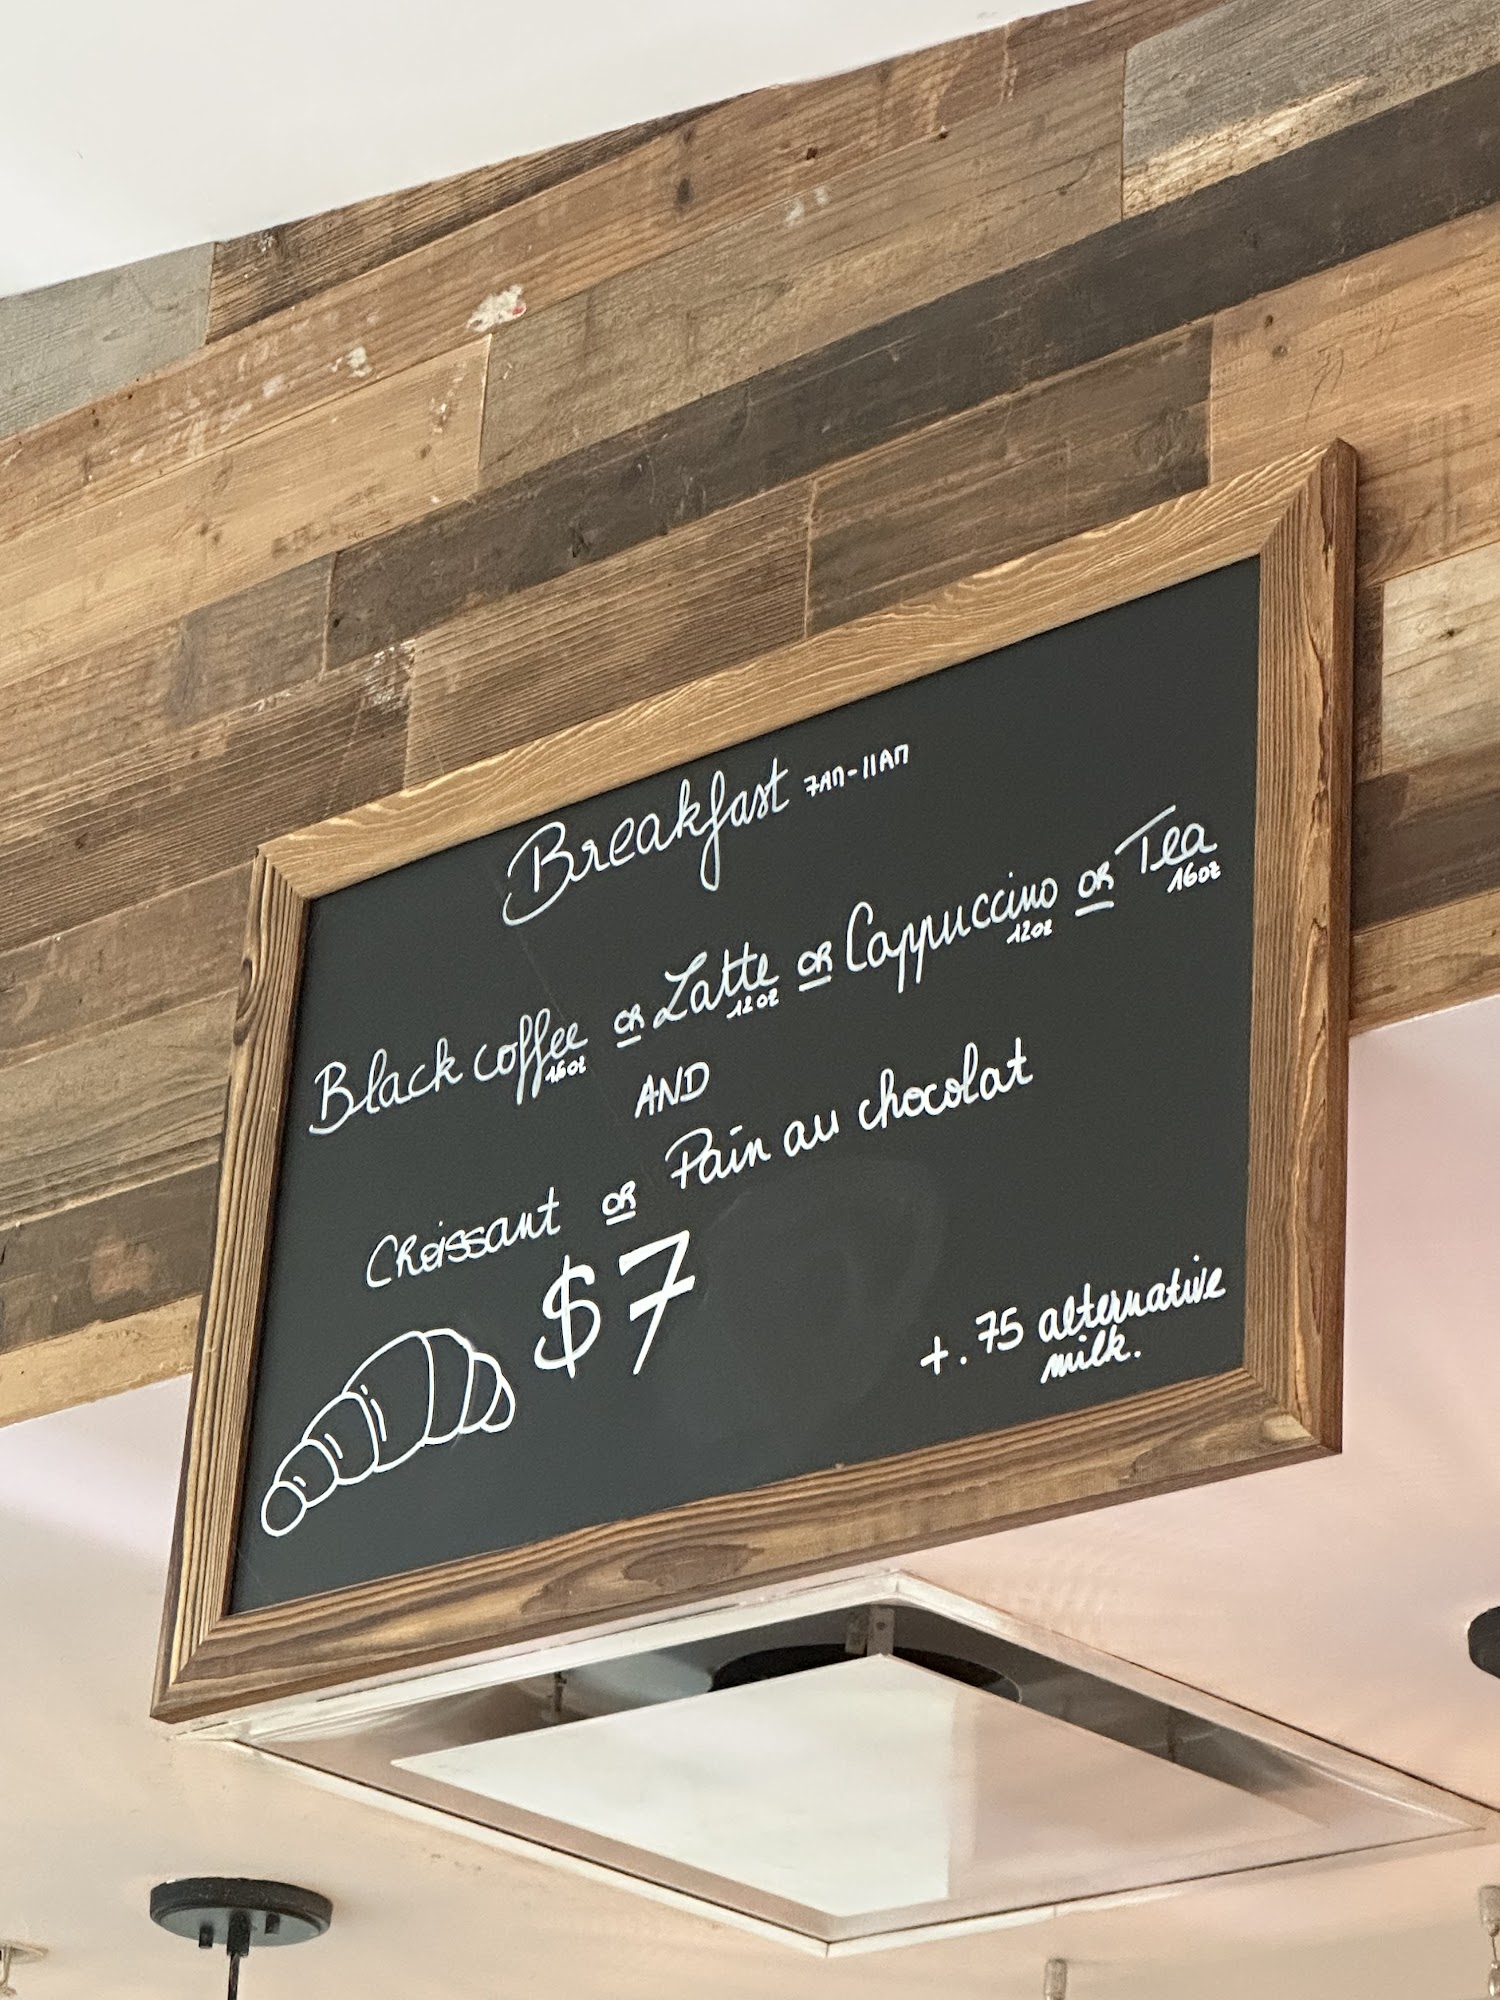 Breakfast 7AM-11AM
Black coffee OR Latte OR Cappuccino OR Tea
16oz 12oz 12oz 16oz
AND
Croissant OR Pain au chocolat
$7
+.75 alternative
milk.